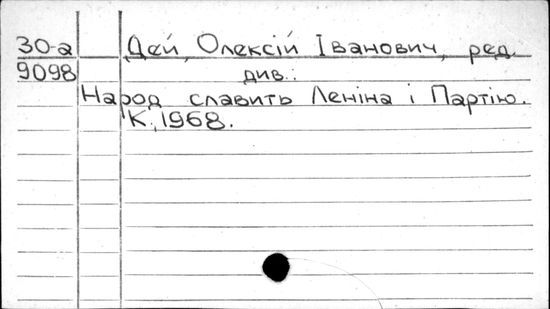 30-а Дей, Олексій Іванович, ред.
9098 див.:
Народ славить Леніна і Партію.
К., 1968.